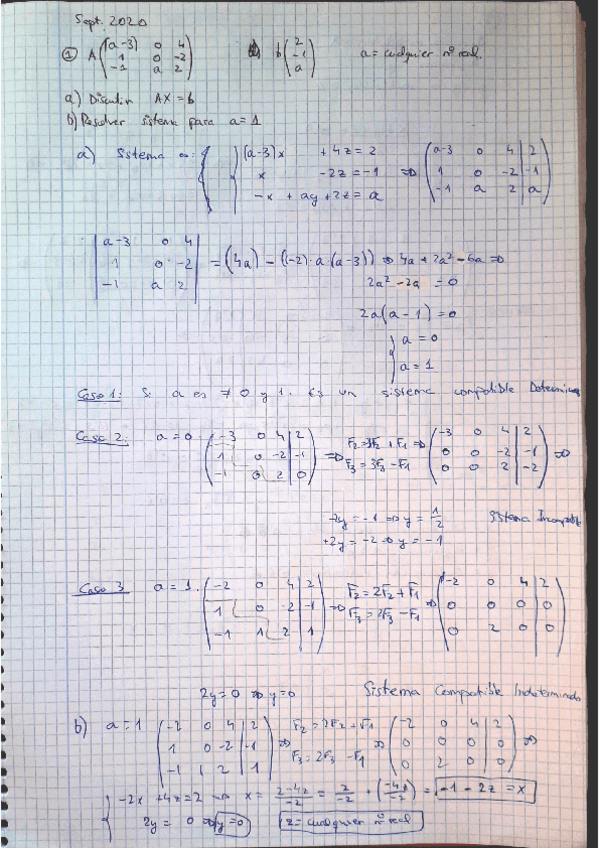 Sept. 2020
① A (a-3 0 4 / 1 0 -2 / -1 a 2) b (2 / -1 / a) a = cualquier nº real.
a) Discutir AX = b
b) Resolver sistema para a = 1
a) Sistema es: { (a-3)x + 4z = 2
x - 2z = -1
-x + ay + 2z = a
⇒ (a-3 0 4 | 2 / 1 0 -2 | -1 / -1 a 2 | a)
|a-3 0 4 / 1 0 -2 / -1 a 2| = (4a) - ((-2)·a·(a-3)) ⇒ 4a + 2a² - 6a ⇒
2a² - 2a = 0
2a(a-1) = 0
{ a = 0
a = 1
Caso 1: Si a es ≠ 0 y 1. Es un sistema compatible Determinado
Caso 2: a = 0 (-3 0 4 | 2 / 1 0 -2 | -1 / -1 0 2 | 0) ⇒ F₂ = 3F₂ + F₁ ⇒ F₃ = 3F₃ - F₁ (-3 0 4 | 2 / 0 0 -2 | -1 / 0 0 2 | -2) ⇒
-2y = -1 ⇒ y = 1/2 Sistema Incompatible
+2y = -2 ⇒ y = -1
Caso 3 a = 1. (-2 0 4 | 2 / 1 0 -2 | -1 / -1 1 2 | 1) ⇒ F₂ = 2F₂ + F₁ F₃ = 2F₃ - F₁ ⇒ (-2 0 4 | 2 / 0 0 0 | 0 / 0 2 0 | 0)
2y = 0 ⇒ y = 0 Sistema Compatible Indeterminado
b) a = 1 (-2 0 4 | 2 / 1 0 -2 | -1 / -1 1 2 | 1) ⇒ F₂ = 2F₂ + F₁ F₃ = 2F₃ - F₁ ⇒ (-2 0 4 | 2 / 0 0 0 | 0 / 0 2 0 | 0) ⇒
{ -2x + 4z = 2 ⇒ x = (2-4z)/-2 = 2/-2 + (-4z/-2) = -1 - 2z = x
2y = 0 ⇒ y = 0 z = cualquier nº real